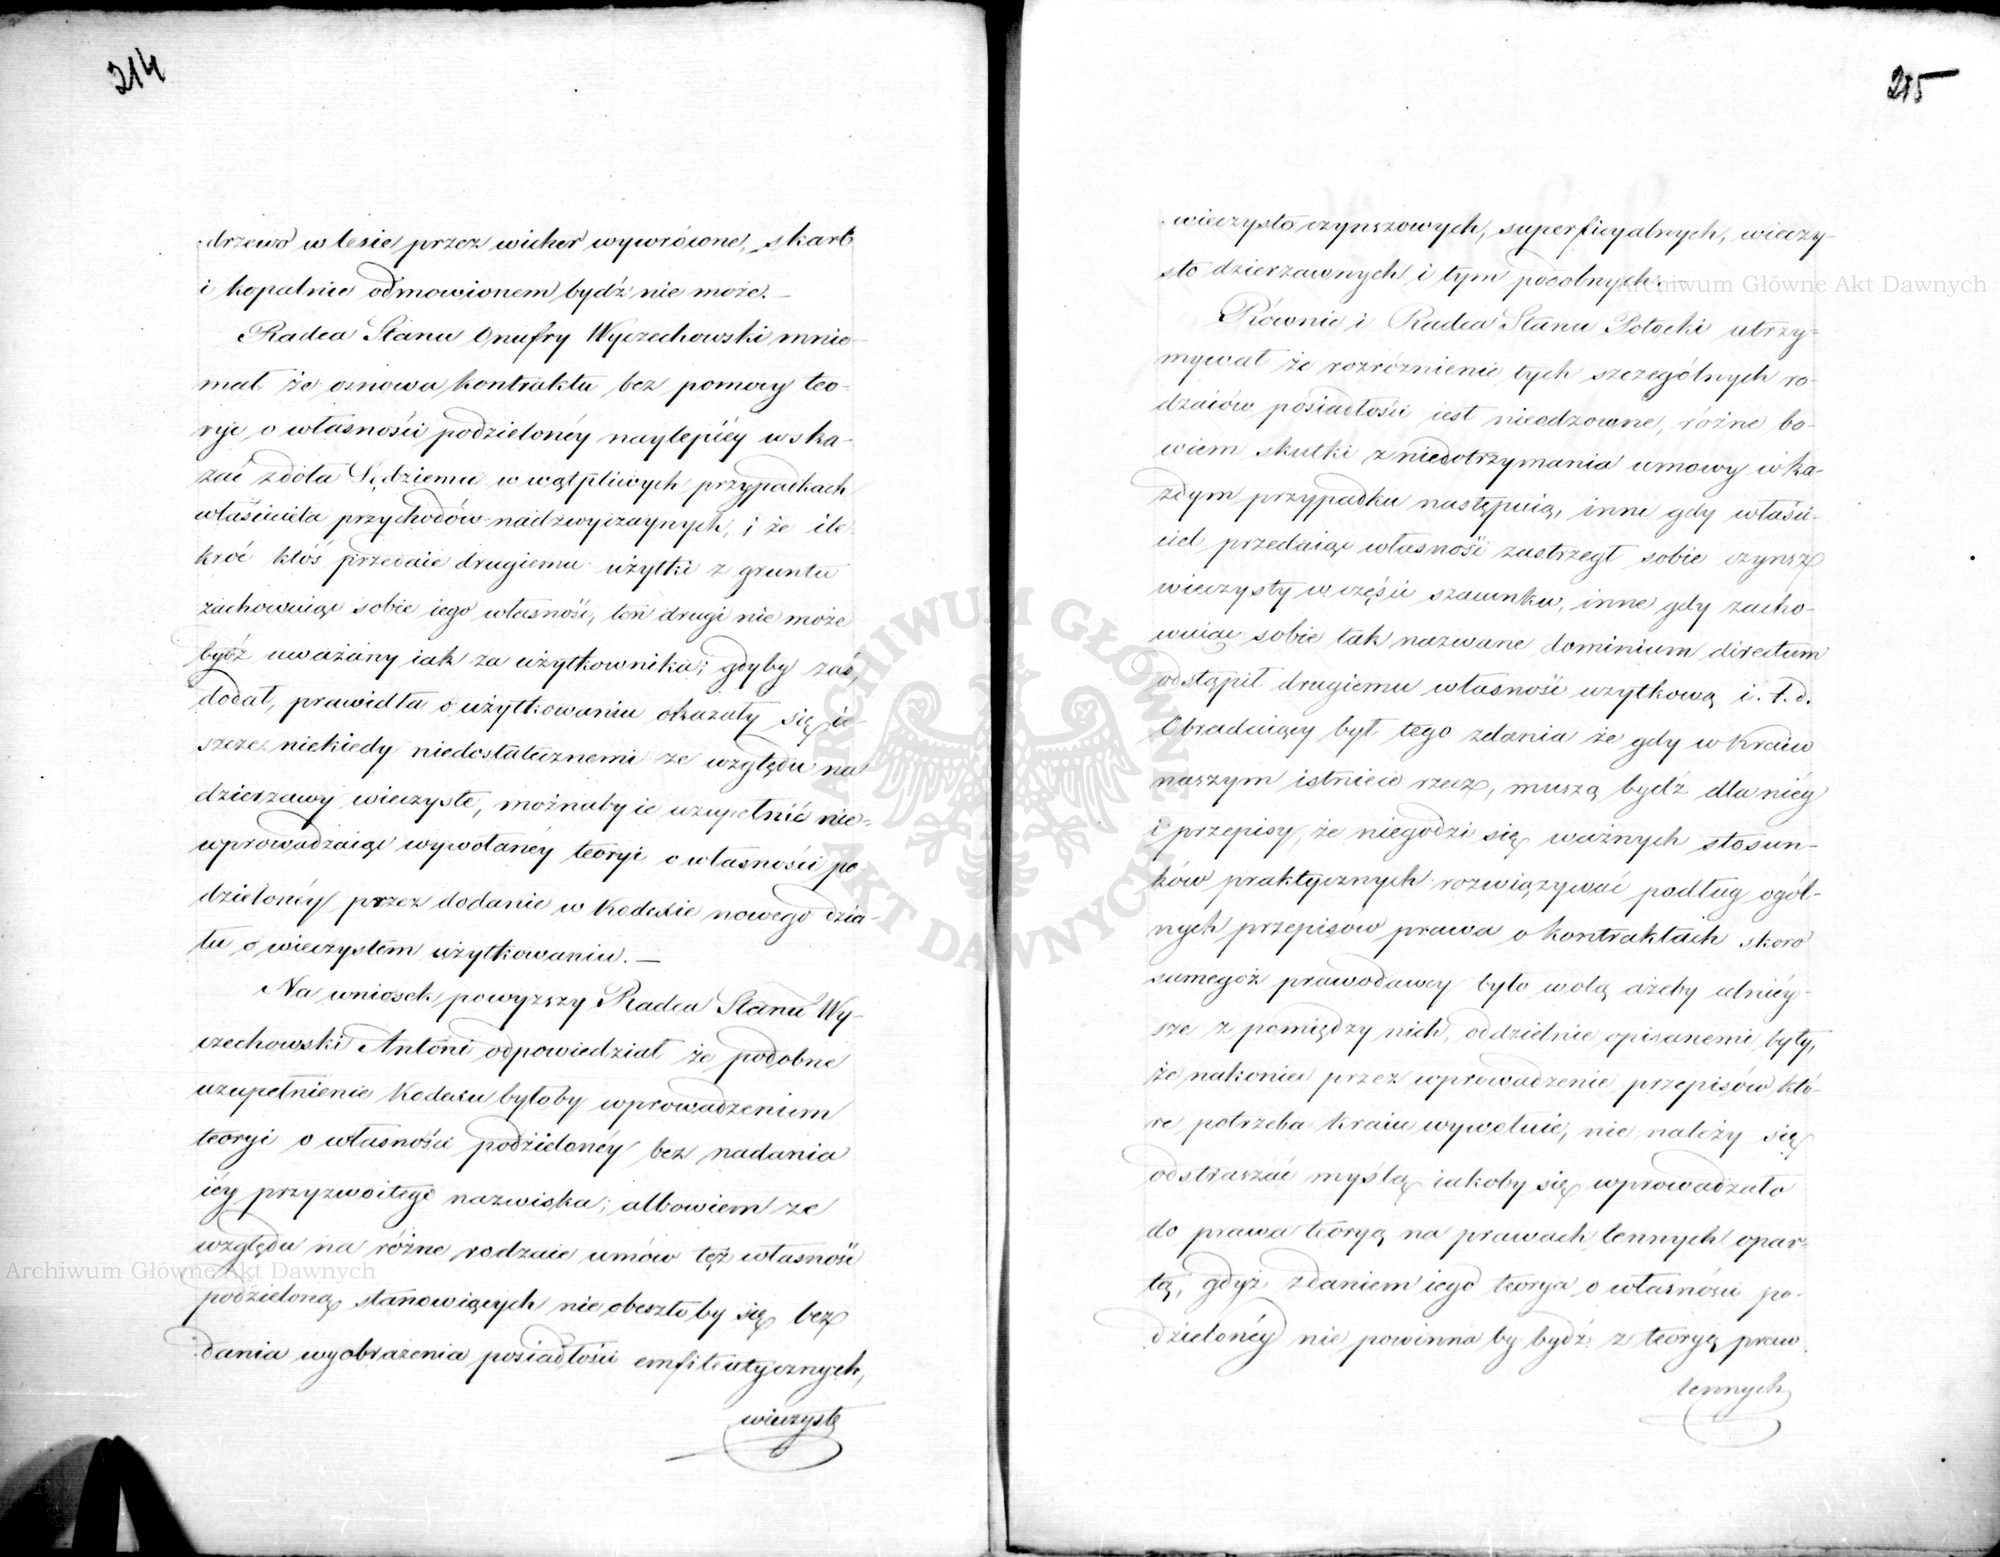 214
drzewo w lesie przez wicher wywrócone, skarb
i kopalnie odmowionem bydź nie może. —
Radca Stanu Onufry Wyczechowski mnie-
mał że osnowa kontraktu bez pomocy teo-
ryi o własności podzielonéy naylepiéy wska-
zać zdoła Sędziemu w wątpliwych przypadkach
właściciela przychodów nadzwyczaynych, i że ile-
kroć ktoś przedaie drugiemu użytki z gruntu
zachowuiąc sobie iego własność, ten drugi nie może
bydź uważany iak za użytkownika; gdyby zaś,
dodał, prawidła o użytkowaniu okazały się ie-
szcze niekiedy niedostatecznemi ze względu na
dzierzawy wieczyste, możnaby ie uzupełnić nie-
wprowadzaiąc wywołanéy teoryi o własności po-
dzielonéy przez dodanie w Kodexie nowego dzia-
łu o wieczystem użytkowaniu. —
Na wniosek powyższy Radca Stanu Wy-
czechowski Antoni odpowiedział że podobne
uzupełnienie Kodexu byłoby wprowadzeniem
teoryi o własności podzielonéy bez nadania
iéy przyzwoitego nazwiska; albowiem ze
względu na różne rodzaie umów też własność
podzieloną stanowiących nie obeszłoby się bez
dania wyobrażenia posiadłości emfiteutycznych,
wieczysto
215
wieczysto czynszowych, superficyalnych, wieczy-
sto dzierzawnych i tym podobnych.
Równie i Radca Stanu Potocki utrzy-
mywał że rozróżnienie tych szczególnych ro-
dzaiów posiadłości iest nieodzowne, różne bo-
wiem skutki z niedotrzymania umowy w ka-
żdym przypadku następuią, inne gdy właści-
ciel przedaiąc własność zastrzegł sobie czynsz
wieczysty w części szacunku, inne gdy zacho-
wuiąc sobie tak nazwane dominium directum
odstąpił drugiemu własność użytkową i. t. d.
Obraduiący był tego zdania że gdy w Kraiu
naszym istnieie rzecz, muszą bydź dla niéy
i przepisy, że niegodzi się ważnych stosun-
ków praktycznych rozwiązywać podług ogól-
nych przepisow prawa o kontraktach skoro
samegoż prawodawcy było wolą ażeby celniéy-
sze z pomiędzy nich, oddzielnie opisanemi były,
że nakoniec przez wprowadzenie przepisów któ-
re potrzeba Kraiu wywołuie, nie należy się
odstraszać myślą iakoby się wprowadzało
do prawa teoryą na prawach lennych opar-
tą, gdyż zdaniem iego teorya o własności po-
dzielonéy nie powinna by bydź z teoryą praw
lennych
Archiwum Główne Akt Dawnych
Archiwum Główne Akt Dawnych
ARCHIWUM GŁÓWNE AKT DAWNYCH